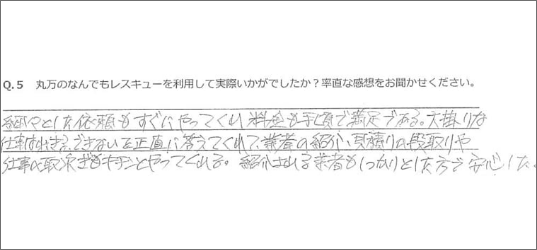 Q.5 丸万のなんでもレスキューを利用して実際いかがでしたか？率直な感想をお聞かせください。
細々とした依頼もすぐにやってくれ 料金も手頃で満足である。大掛りな
仕事は出来る、できないを正直に答えてくれて業者の紹介、見積りの段取りや
仕事の取次ぎもキチンとやってくれる。紹介される業者もしっかりとした方で安心した。